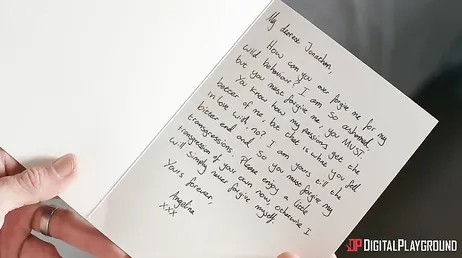 My dearest Jonathan,
How can you ever forgive me for my
wild behaviour? I am so ashamed,
but you must forgive me, you MUST.
You know how my passions get the
better of me but that is what you fell
in love with no? I am yours till the
bitter end and so you must forgive my
transgressions. Please enjoy a little
transgression of your own now, otherwise I
will simply never forgive myself.
Yours forever,
Angelina
xxx
DIGITALPLAYGROUND